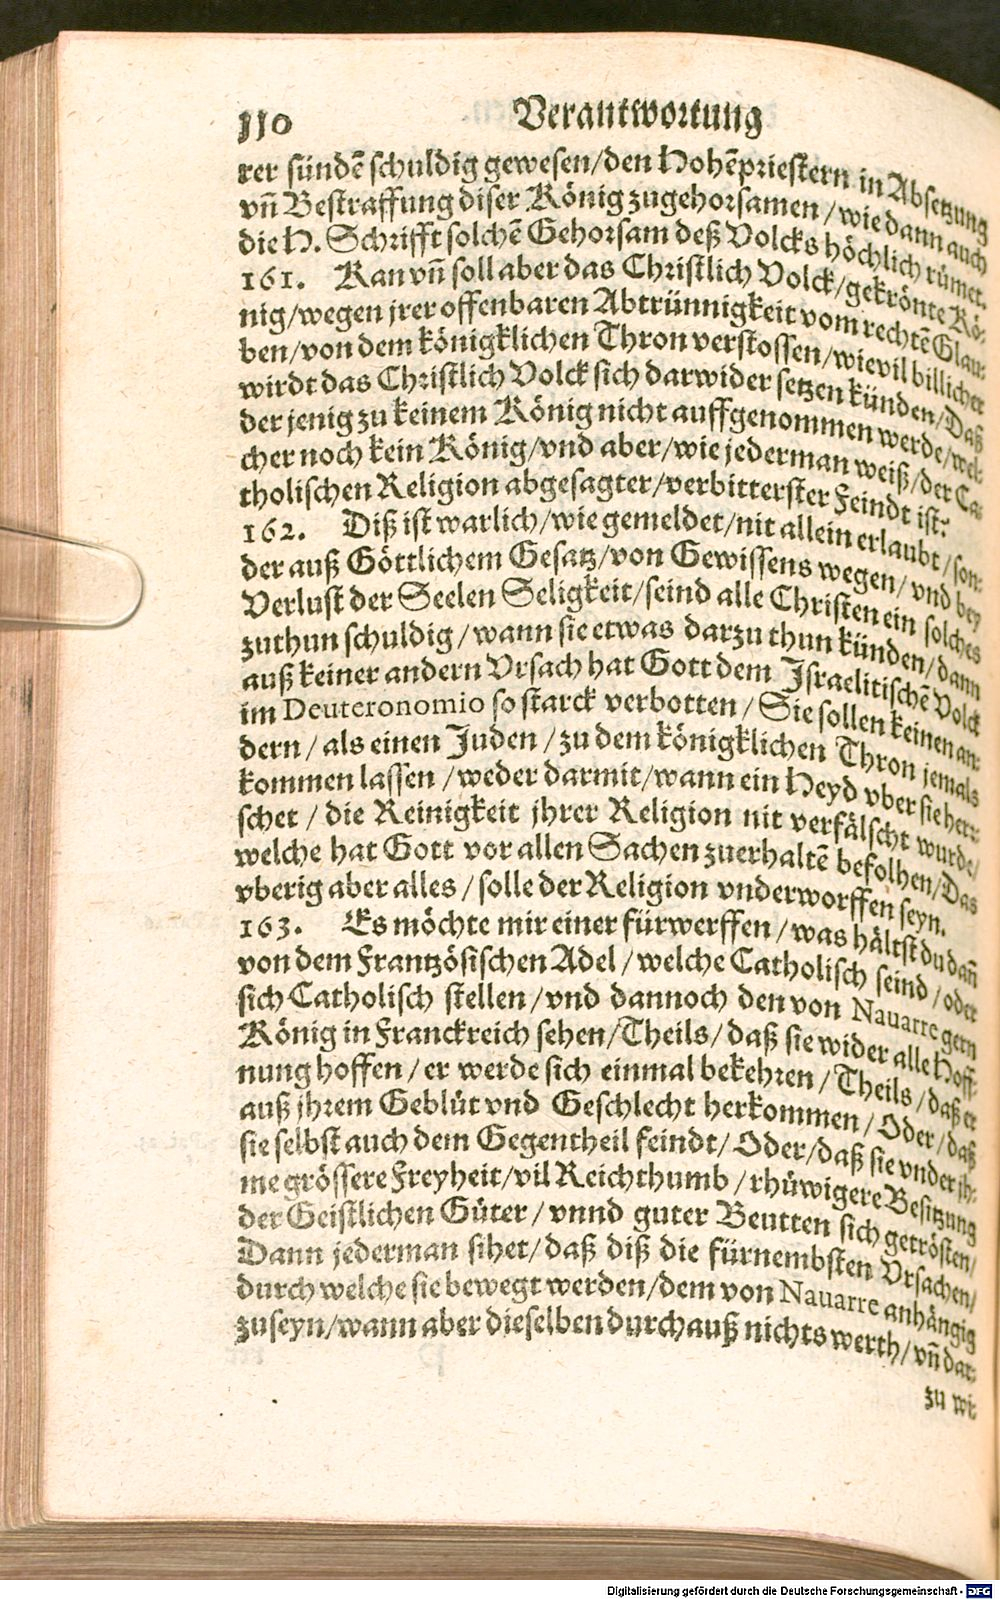 110 Verantwortung
rer sündẽ schuldig gewesen/den Hohẽpriestern in Absetzung
vñ Bestraffung diser König zugehorsamen/wie dann auch
die H. Schrifft solchẽ Gehorsam deß Volcks höchlich rümet.
161. Kan vñ soll aber das Christlich Volck/gekrönte Kö-
nig/wegen jrer offenbaren Abtrünnigkeit vom rechtẽ Glau-
ben/von dem königklichen Thron verstossen/wievil billicher
wirdt das Christlich Volck sich darwider setzen künden/Daß
der jenig zu keinem König nicht auffgenommen werde/wel-
cher noch kein König/vnd aber/wie jederman weiß/der Ca-
tholischen Religion abgesagter/verbitterster Feindt ist?
162. Diß ist warlich/wie gemeldet/nit allein erlaubt/son-
der auß Göttlichem Gesatz/von Gewissens wegen/vnd bey
Verlust der Seelen Seligkeit/seind alle Christen ein solches
zuthun schuldig/wann sie etwas darzu thun künden/dann
auß keiner andern Vrsach hat Gott dem Israelitischẽ Volck
im Deuteronomio so starck verbotten/Sie sollen keinen an-
dern/als einen Juden/zu dem königklichen Thron jemals
kommen lassen/weder darmit/wann ein Heyd vber sie herr-
schet/die Reinigkeit jhrer Religion nit verfälscht wurde/
welche hat Gott vor allen Sachen zuerhaltẽ befolhen/Das
vberig aber alles/solle der Religion vnderworffen seyn.
163. Es möchte mir einer fürwerffen/was hältst du dañ
von dem Frantzösischen Adel/welche Catholisch seind/oder
sich Catholisch stellen/vnd dannoch den von Nauarre gern
König in Franckreich sehen/Theils/daß sie wider alle Hoff-
nung hoffen/er werde sich einmal bekehren/Theils/daß er
auß jhrem Geblüt vnd Geschlecht herkommen/Oder/daß
sie selbst auch dem Gegentheil feindt/Oder/daß sie vnder jh-
me grössere Freyheit/vil Reichthumb/rhüwigere Besitzung
der Geistlichen Güter/vnnd guter Beutten sich getrösten/
Dann jederman sihet/daß diß die fürnembsten Vrsachen/
durch welche sie bewegt werden/dem von Nauarre anhängig
zuseyn/wann aber dieselben durchauß nichts werth/vñ dar-
zu wi-
Digitalisierung gefördert durch die Deutsche Forschungsgemeinschaft - DFG